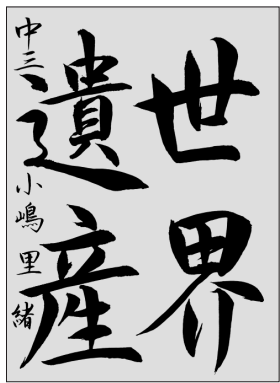 世界
遺産
中三 小嶋里緒